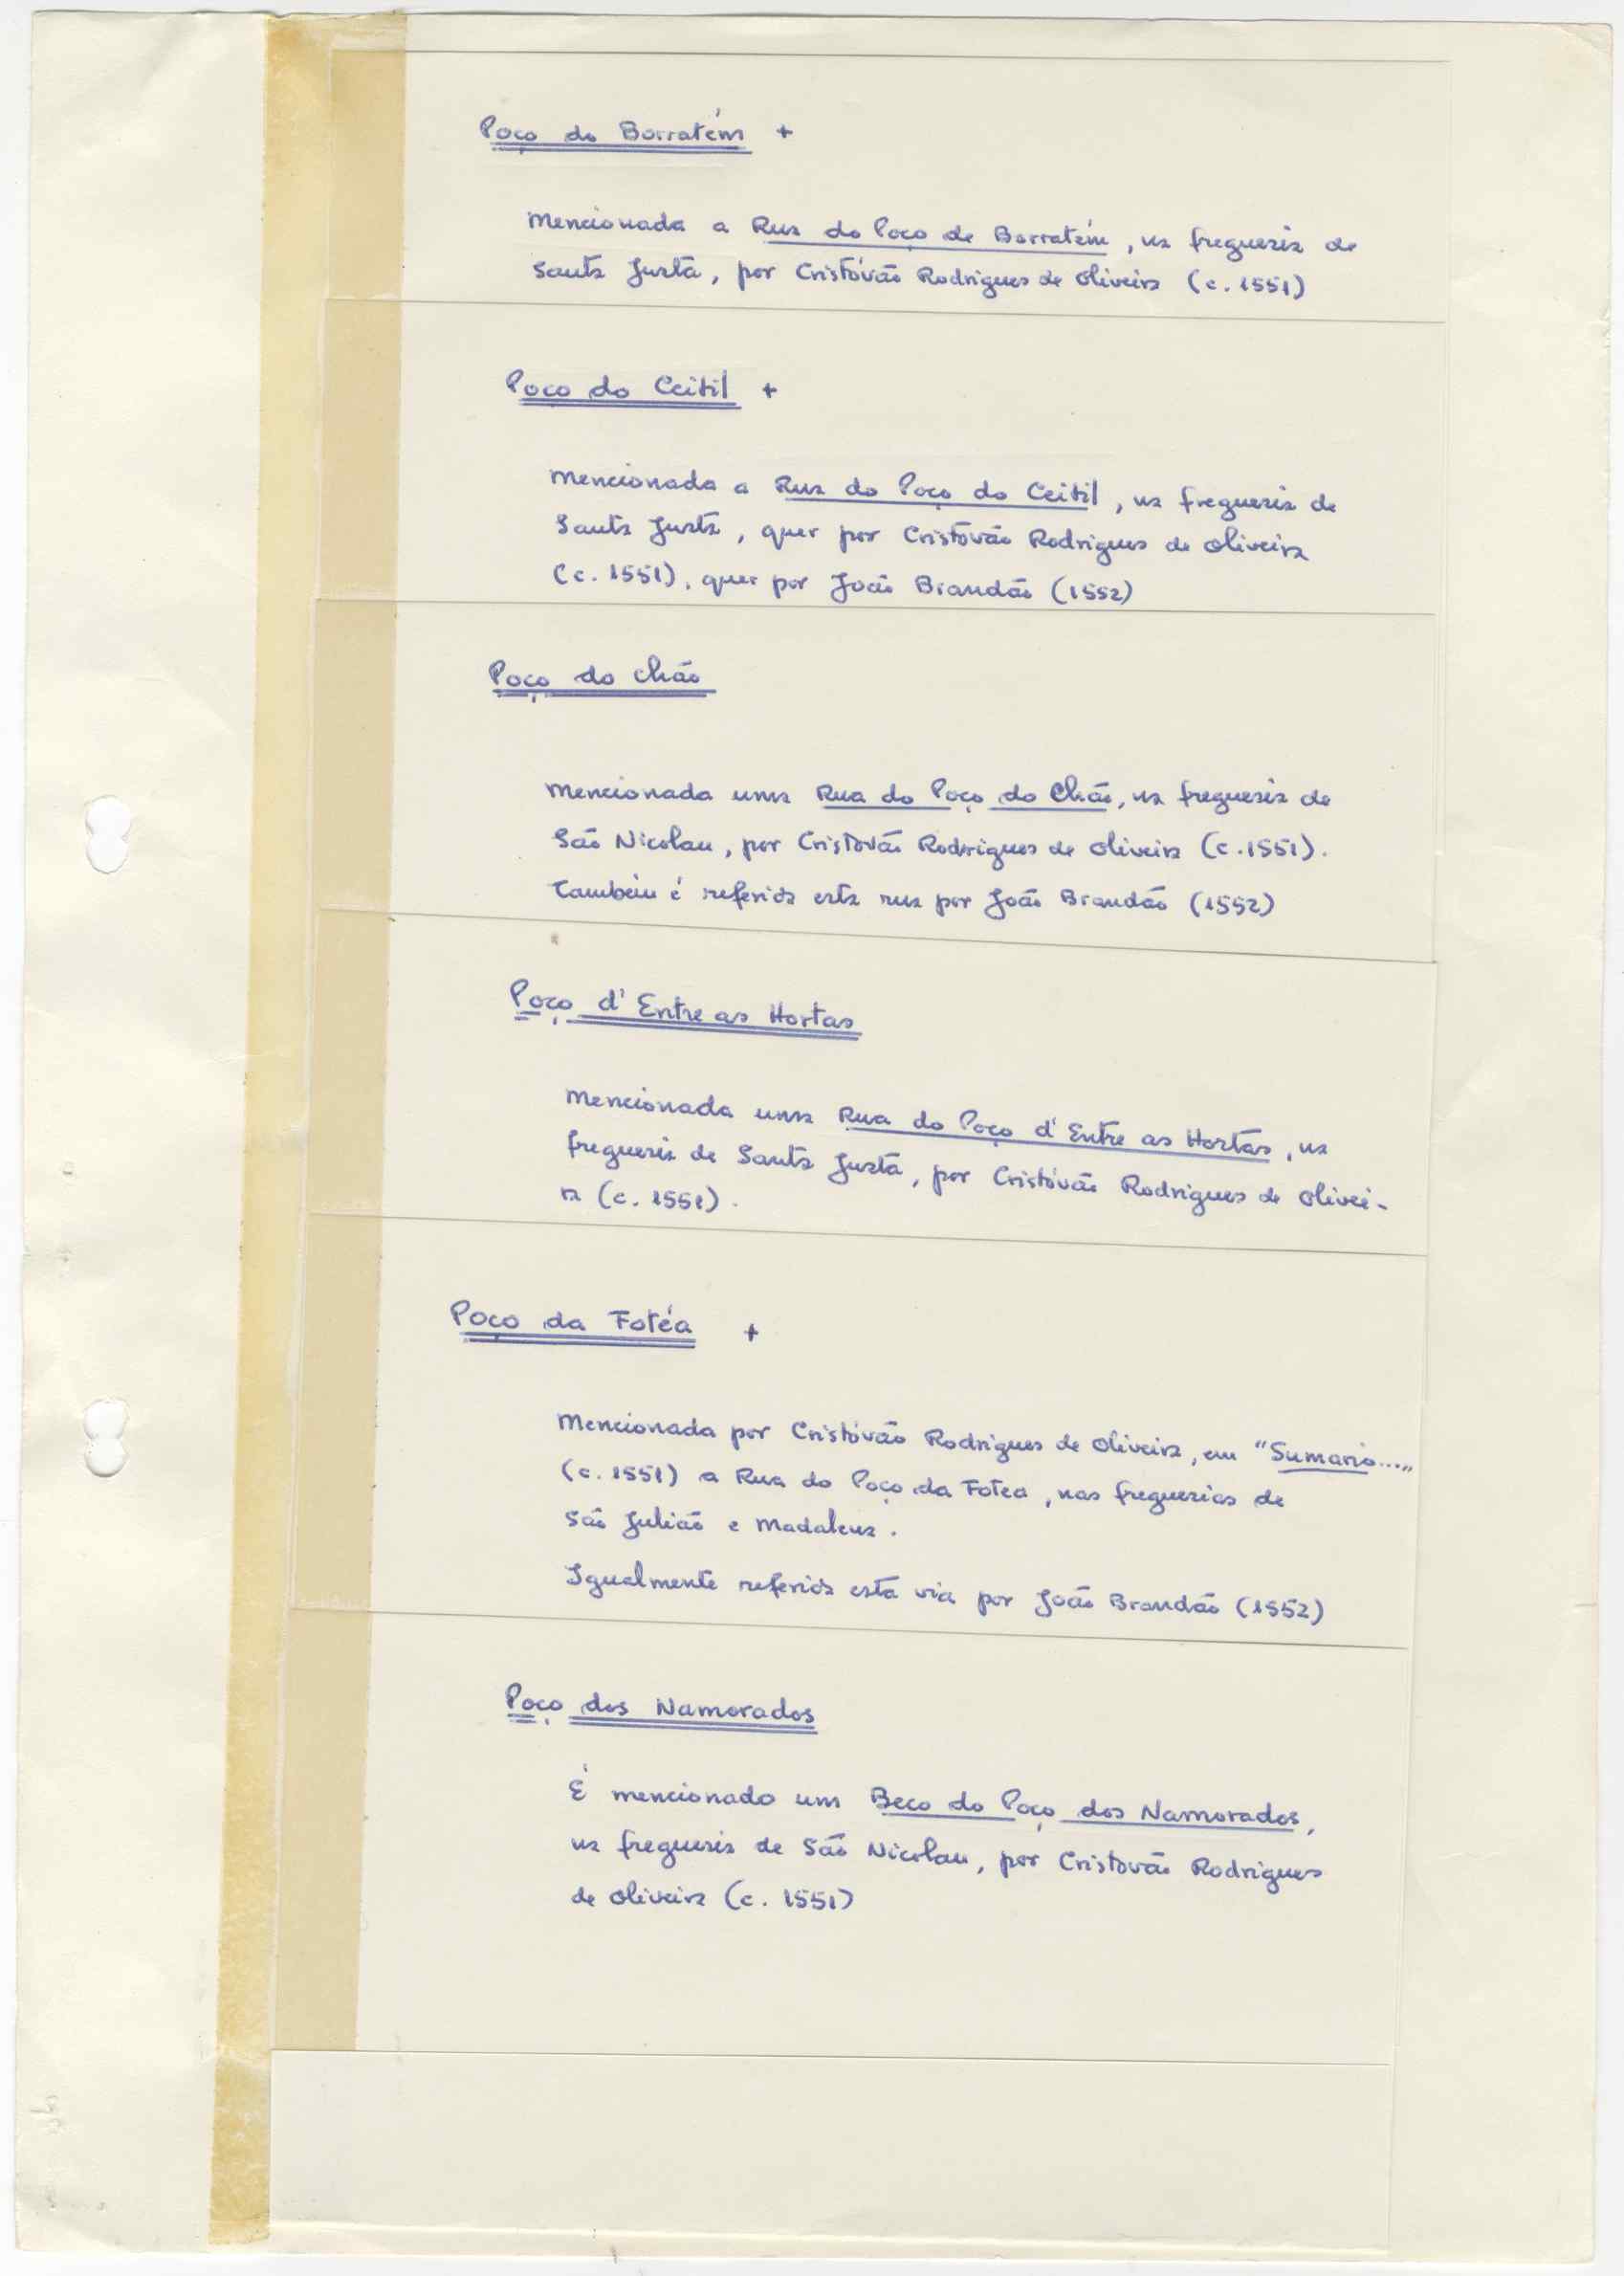 Poço do Borratém +
Mencionada a Rua do Poço de Borratém, na freguesia de
Santa Justa, por Cristóvão Rodrigues de Oliveira (c. 1551)
Poço do Ceitil +
Mencionada a Rua do Poço do Ceitil, na freguesia de
Santa Justa, quer por Cristóvão Rodrigues de Oliveira
(c. 1551), quer por João Brandão (1552)
Poço do Chão
Mencionada uma Rua do Poço do Chão, na freguesia de
São Nicolau, por Cristóvão Rodrigues de Oliveira (c. 1551).
Também é referida esta rua por João Brandão (1552)
Poço d'Entre as Hortas
Mencionada uma Rua do Poço d'Entre as Hortas, na
freguesia de Santa Justa, por Cristóvão Rodrigues de Olivei-
ra (c. 1551).
Poço da Fotéa +
Mencionada por Cristóvão Rodrigues de Oliveira, em "Sumario..."
(c. 1551) a Rua do Poço da Fotea, nas freguesias de
São Julião e Madalena.
Igualmente referida esta via por João Brandão (1552)
Poço dos Namorados
É mencionado um Beco do Poço dos Namorados,
na freguesia de São Nicolau, por Cristovão Rodrigues
de Oliveira (c. 1551)